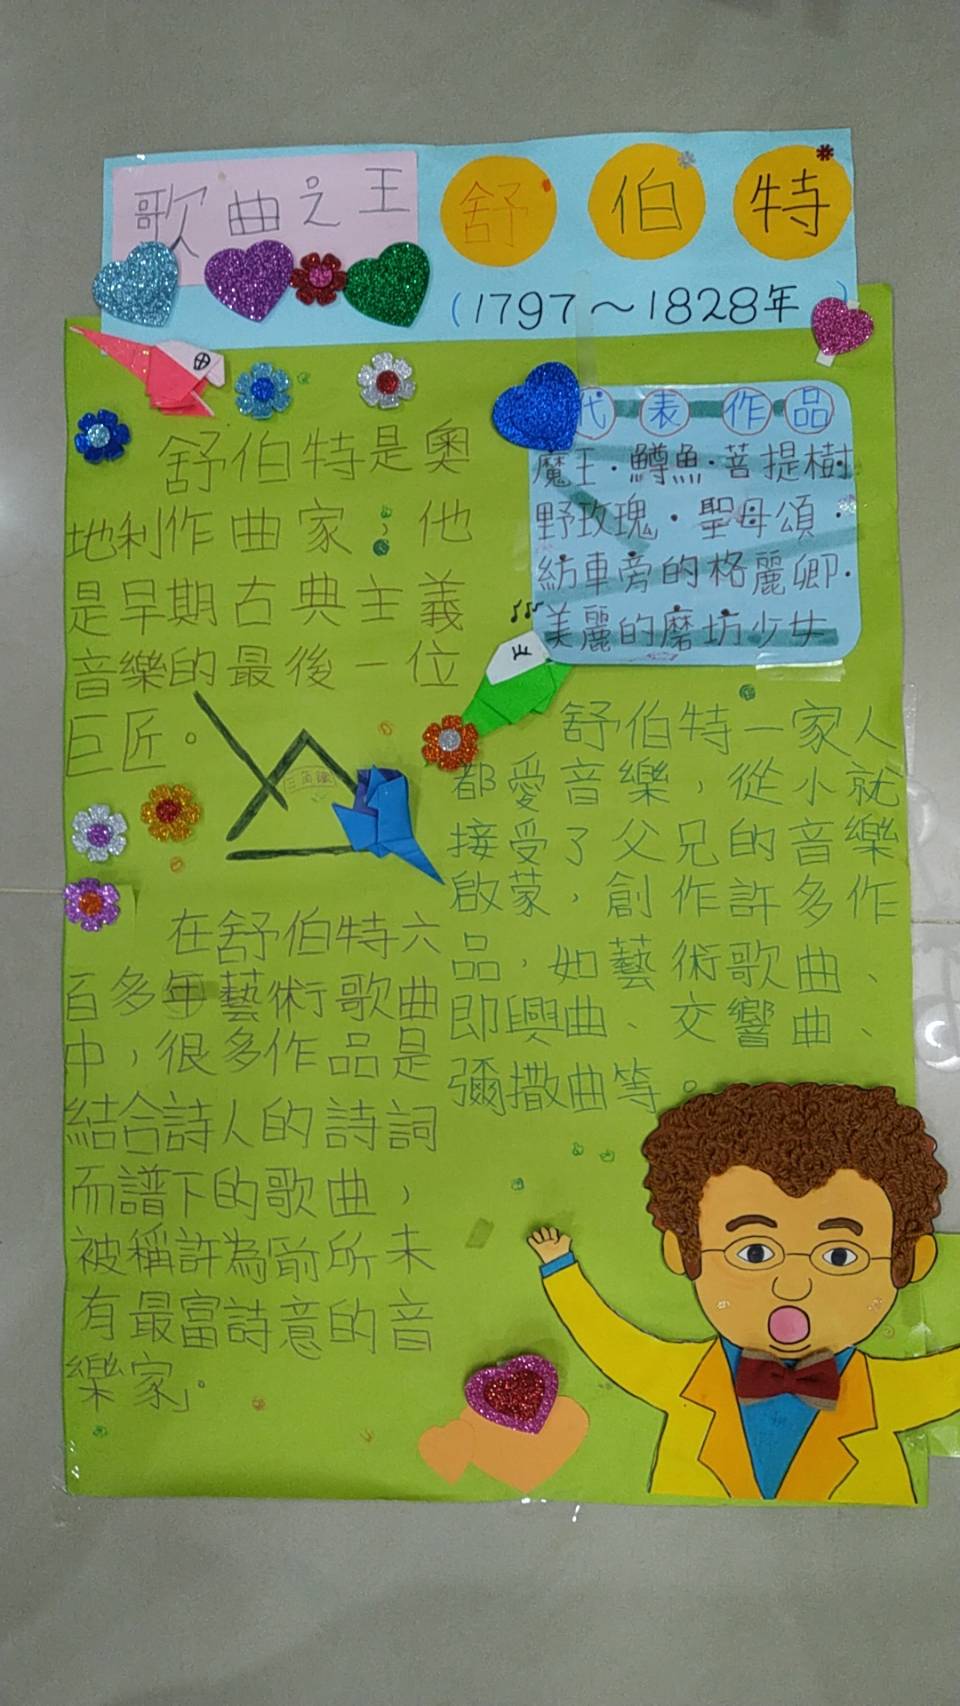 歌曲之王
舒伯特
(1797～1828年)
代表作品
魔王·鱒魚·菩提樹
野玫瑰·聖母頌·
紡車旁的格麗卿·
美麗的磨坊少女
舒伯特是奧
地利作曲家；他
是早期古典主義
音樂的最後一位
巨匠。
三角鐵
舒伯特一家人
都愛音樂，從小就
接受了父兄的音樂
啟蒙，創作許多作
品，如藝術歌曲、
即興曲、交響曲、
彌撒曲等。
在舒伯特六
百多年藝術歌曲
中，很多作品是
結合詩人的詩詞
而譜下的歌曲，
被稱許為「前所未
有最富詩意的音
樂家」。